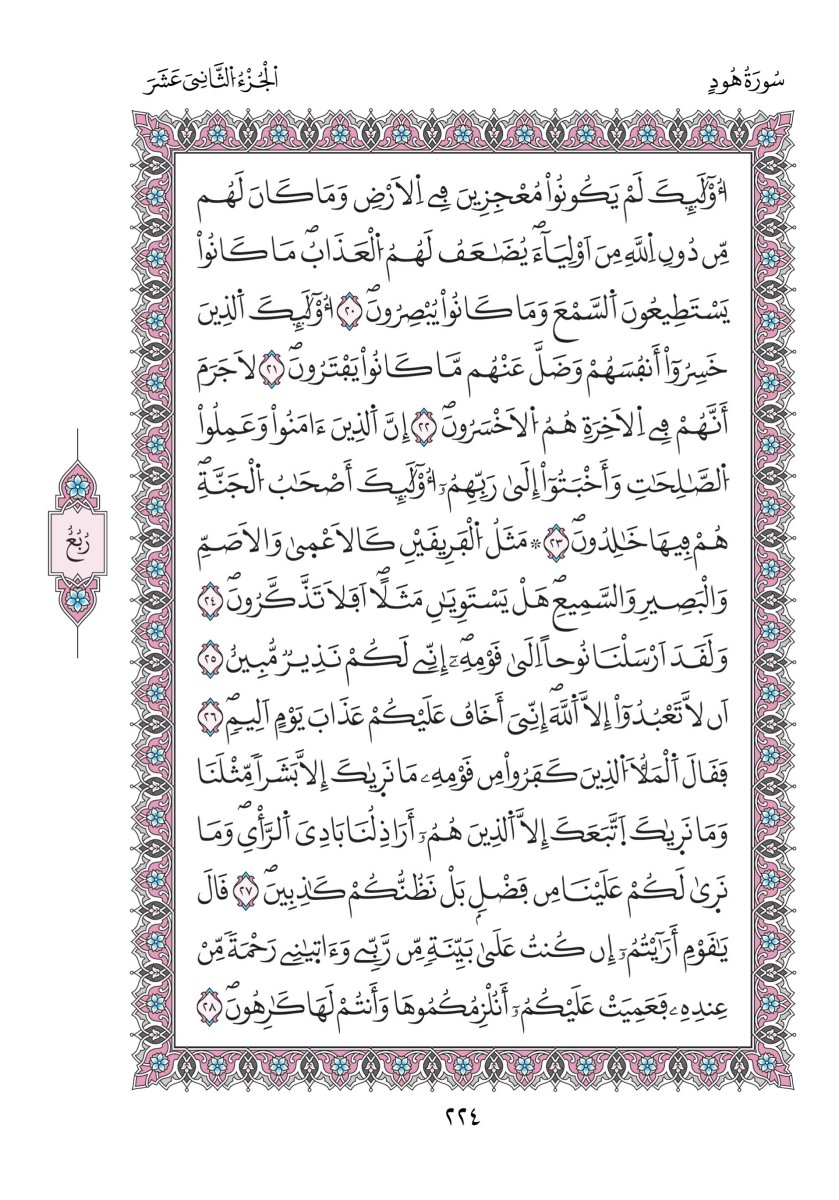 سُورَةُ هُودٍ
اَ۬لْجُزْءُ اُ۬لثَّانِيَ عَشَرَ
أُوْلَٰٓئِكَ لَمْ يَكُونُواْ مُعْجِزِينَ فِے اِ۬لَارْضِ وَمَا كَانَ لَهُم
مِّن دُونِ اِ۬للَّهِ مِنَ اَوْلِيَآءَۖ يُضَٰعَفُ لَهُمُ اُ۬لْعَذَابُۖ مَا كَانُواْ
يَسْتَطِيعُونَ اَ۬لسَّمْعَ وَمَا كَانُواْ يُبْصِرُونَۖ ٢٠ أُوْلَٰٓئِكَ اَ۬لذِينَ
خَسِرُوٓاْ أَنفُسَهُمْ وَضَلَّ عَنْهُم مَّا كَانُواْ يَفْتَرُونَۖ ٢١ لَا جَرَمَ
أَنَّهُمْ فِے اِ۬لَاخِرَةِ هُمُ اُ۬لَاخْسَرُونَۖ ٢٢ إِنَّ اَ۬لذِينَ ءَامَنُواْ وَعَمِلُواْ
اُ۬لصَّٰلِحَٰتِ وَأَخْبَتُوٓاْ إِلَىٰ رَبِّهِمُۥٓ أُوْلَٰٓئِكَ أَصْحَٰبُ اُ۬لْجَنَّةِۖ
هُمْ فِيهَا خَٰلِدُونَۖ ٢٣ ۞ مَثَلُ اُ۬لْفَرِيقَيْنِ كَالَاعْمٜىٰ وَالَاصَمِّ
وَالْبَصِيرِ وَالسَّمِيعِۖ هَلْ يَسْتَوِيَٰنِ مَثَلًاۖ اَفَلَا تَذَّكَّرُونَۖ ٢٤
وَلَقَدَ اَرْسَلْنَا نُوحاً اِلَىٰ قَوْمِهِۦٓۖ إِنِّے لَكُمْ نَذِيرٌ مُّبِينٌ ٢٥
اَن لَّا تَعْبُدُوٓاْ إِلَّا اَ۬للَّهَۖ إِنِّيَ أَخَافُ عَلَيْكُمْ عَذَابَ يَوْمٍ اَلِيمٖۖ ٢٦
فَقَالَ اَ۬لْمَلَأُ اُ۬لذِينَ كَفَرُواْ مِن قَوْمِهِۦ مَا نَرٜيٰكَ إِلَّا بَشَراٗ مِّثْلَنَا
وَمَا نَرٜيٰكَ اَ۪تَّبَعَكَ إِلَّا اَ۬لذِينَ هُمُۥٓ أَرَاذِلُنَا بَادِيَ اَ۬لرَّأْيِۖ وَمَا
نَرٜىٰ لَكُمْ عَلَيْنَا مِن فَضْلِۢ بَلْ نَظُنُّكُمْ كَٰذِبِينَۖ ٢٧ قَالَ
يَٰقَوْمِ أَرَٰٓيْتُمُۥٓ إِن كُنتُ عَلَىٰ بَيِّنَةٖ مِّن رَّبِّے وَءَاتٜيٰنِے رَحْمَةٗ مِّنْ
عِندِهِۦ فَعَمِيَتْ عَلَيْكُمُۥٓ أَنُلْزِمُكُمُوهَا وَأَنتُمْ لَهَا كَٰرِهُونَۖ ٢٨
رُبُعُ
٢٢٤